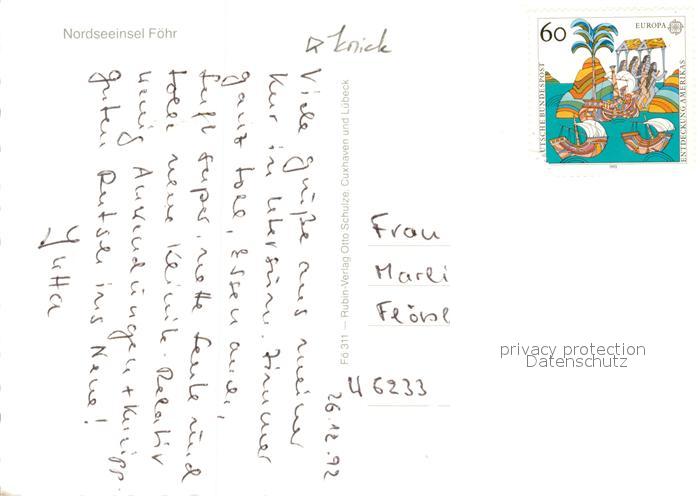 Nordseeinsel Föhr
Knick
60
EUROPA
DEUTSCHE BUNDESPOST
ENTDECKUNG AMERIKAS
1992
26.12.92
Viele Grüße aus meiner
Kur in Utersum. Zimmer
ganz toll, Essen auch,
Luft super, nette Leute und
tolle neue Klinik. Relativ
wenig Anwendungen + Kneipp.
Guten Rutsch ins Neue!
Jutta
Fö 311 — Rubin-Verlag Otto Schulze, Cuxhaven und Lübeck
Frau
Marli
Flörsl
W 6233
privacy protection
Datenschutz